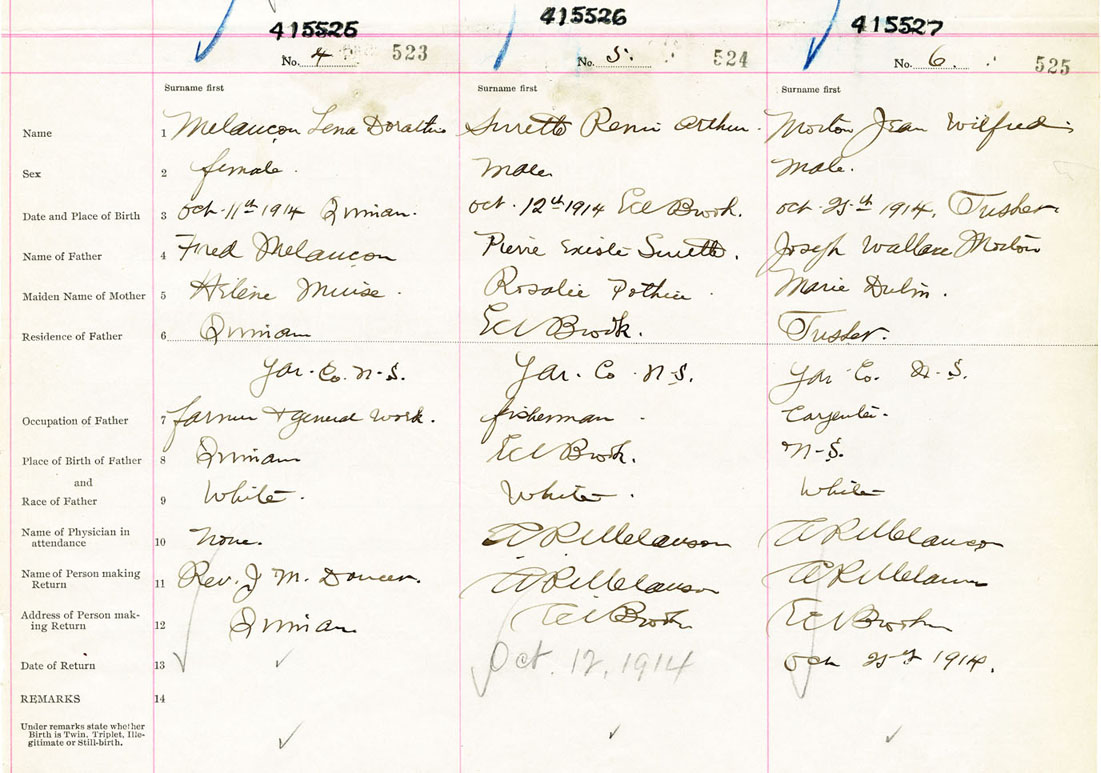 415525 415526 415527
No. 4 523 No. 5. 524 No. 6. 525
Surname first Surname first Surname first
Name 1 Melancon Lena Surette Remi Arthur. Morton Jean Wilfred
Sex 2 female. Male. Male.
Date and Place of Birth 3 Oct. 11th 1914 Quinan. Oct. 12th 1914 Eel Brook. Oct. 25th 1914. Tusket.
Name of Father 4 Fred Melancon Pierre Surette. Joseph Wallace Morton
Maiden Name of Mother 5 Hélène Muise. Rosalie Pothier. Marie
Residence of Father 6 Quinan Eel Brook. Tusket.
Yar. Co. N.S. Yar. Co. N.S. Yar. Co. N.S.
Occupation of Father 7 farmer + general work. fisherman Carpenter.
Place of Birth of Father 8 Quinan Eel Brook. N.S.
and
Race of Father 9 White. White. White
Name of Physician in
attendance 10 None. A R Melanson A R Melanson
Name of Person making
Return 11 Rev. J. M. A R Melanson A R Melanson
Address of Person mak-
ing Return 12 Quinan Eel Brook Eel Brook
Date of Return 13 Oct. 12, 1914 Oct 25th 1914.
REMARKS 14
Under remarks state whether
Birth is Twin, Triplet, Ille-
gitimate or Still-birth.